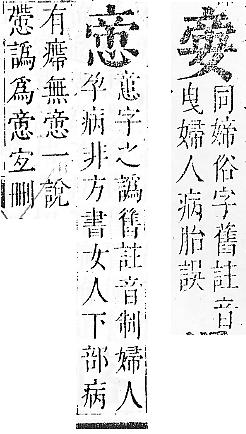 同媂俗字舊註音
曳婦人病胎誤
字之譌舊註音制婦人
孕病非方書女人下部病
有㿃無一說
慸譌爲宐刪